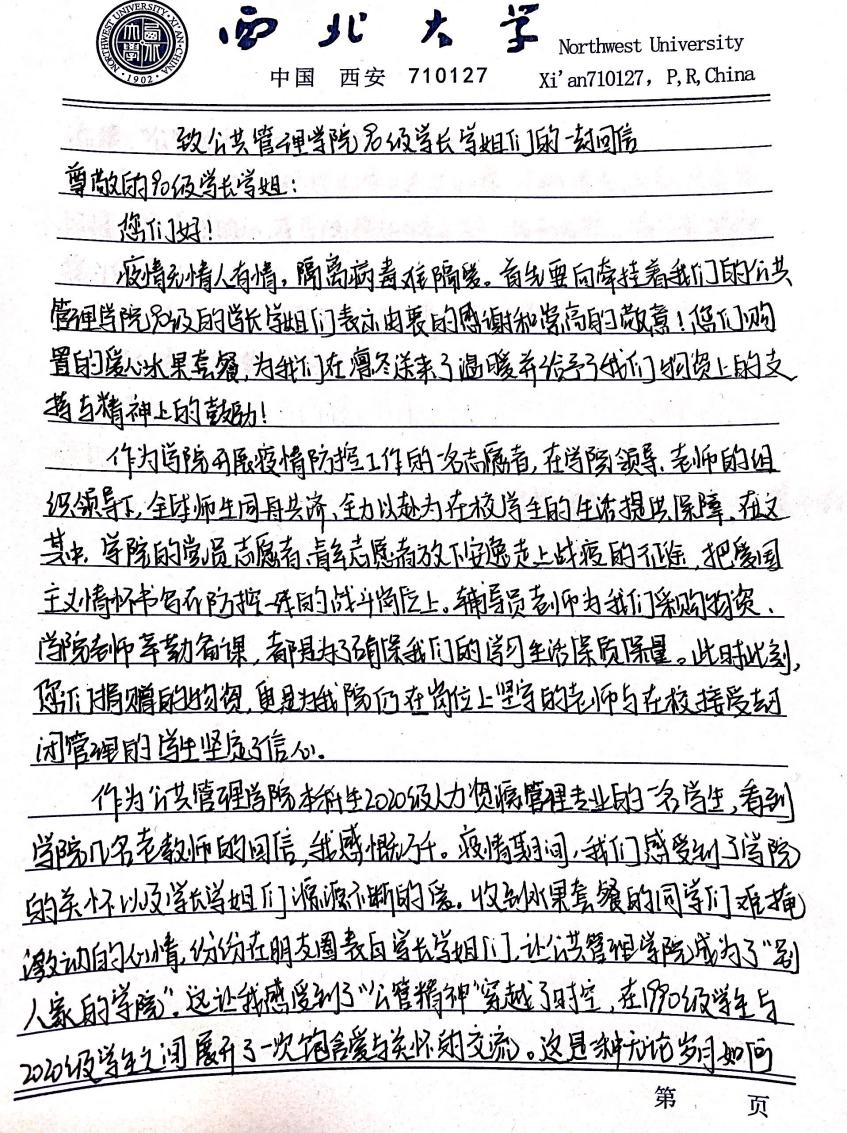 NORTHWEST UNIVERSITY XI'AN CHINA
1902
西北大学 Northwest University
中国 西安 710127 Xi'an710127, P,R,China
致公共管理学院90级学长学姐们的一封回信
尊敬的90级学长学姐:
您们好!
疫情无情人有情,隔离病毒难隔爱。首先要向牵挂着我们的公共
管理学院90级的学长学姐们表示由衷的感谢和崇高的敬意!您们购
置的爱心水果套餐,为我们在寒冬送来了温暖并给予了我们物资上的支
持与精神上的鼓励!
作为学院开展疫情防控工作的一名志愿者,在学院领导、老师的组
织领导下,全体师生同舟共济、全力以赴为在校学生的生活提供保障。在这
其中,学院的党员志愿者、青年志愿者放下安逸走上战疫的征途,把爱国
主义情怀书写在防控一线的战斗岗位上。辅导员老师为我们采购物资、
学院老师辛勤备课,都是为了确保我们的学习生活保质保量。此时此刻,
您们捐赠的物资,更是为我院仍在岗位上坚守的老师与在校接受封
闭管理的学生坚定了信心。
作为公共管理学院本科生2020级人力资源管理专业的一名学生,看到
学院几名老教师的回信,我感慨万千。疫情期间,我们感受到了学院
的关怀以及学长学姐们源源不断的爱。收到水果套餐的同学们难掩
激动的心情,纷纷在朋友圈表白学长学姐们,让公共管理学院成为了“别
人家的学院”。这让我感受到了“公管精神”穿越了时空,在1990级学生与
2020级学生之间展开了一次饱含爱与关怀的交流。这是一种无论岁月如何
第 页